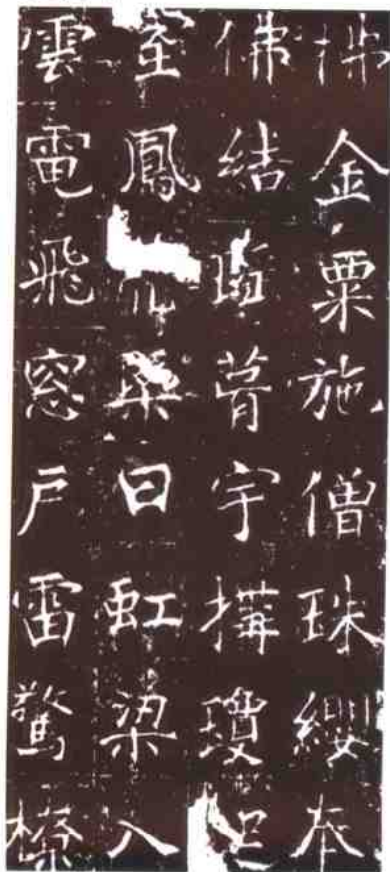 金粟施僧珠纓奉
佛結甍宇構瓊
鳳日虹梁入
雲電飛窓戶雷驚橑